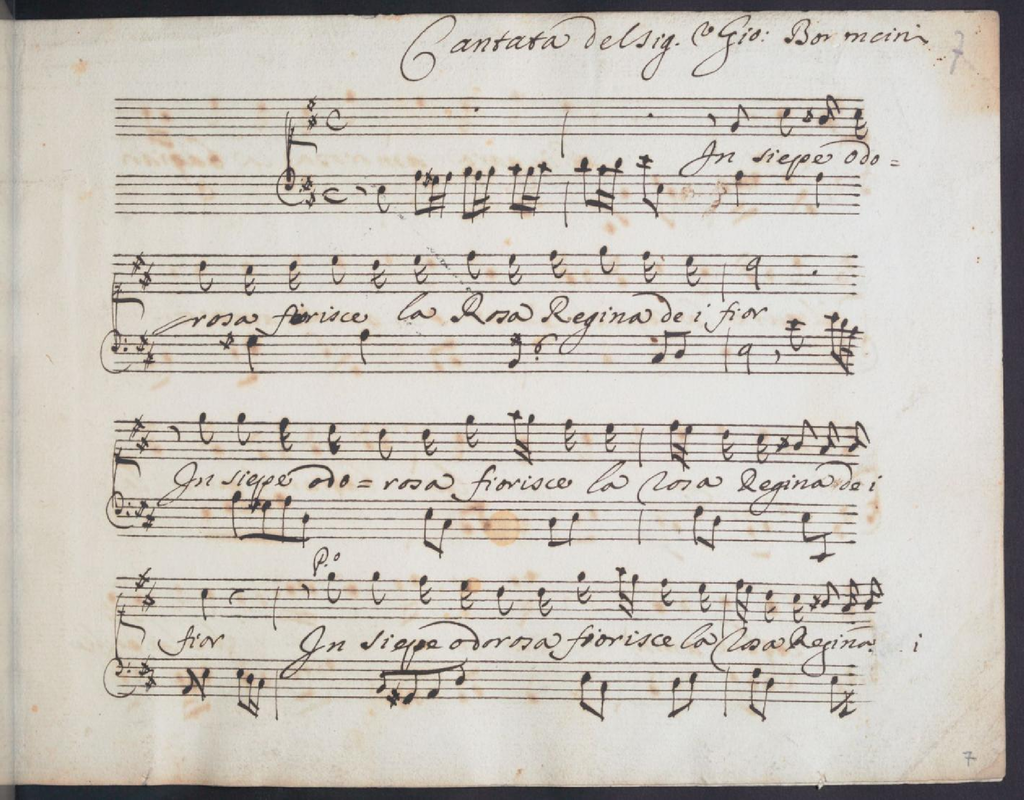 Cantata del Sig.r Gio: Bononcini
7
In siepe odo=
rosa fiorisce la Rosa Regina de i fior
In siepe odo=rosa fiorisce la rosa Regina de i
P.o
fior In siepe odorosa fiorisce la rosa Regina i
7